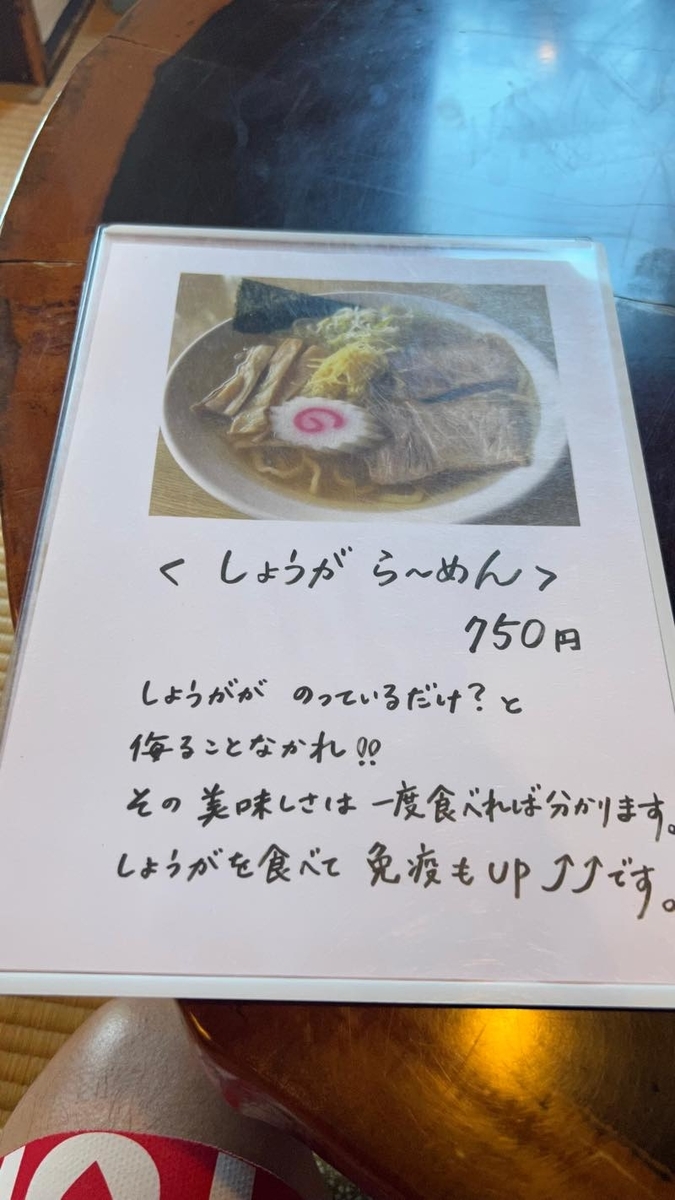 < しょうが ら〜めん >
750円
しょうがが のっているだけ?と
侮ることなかれ!!
その 美味しさは 一度食べれば分かります。
しょうがを食べて 免疫もUP⤴⤴です。